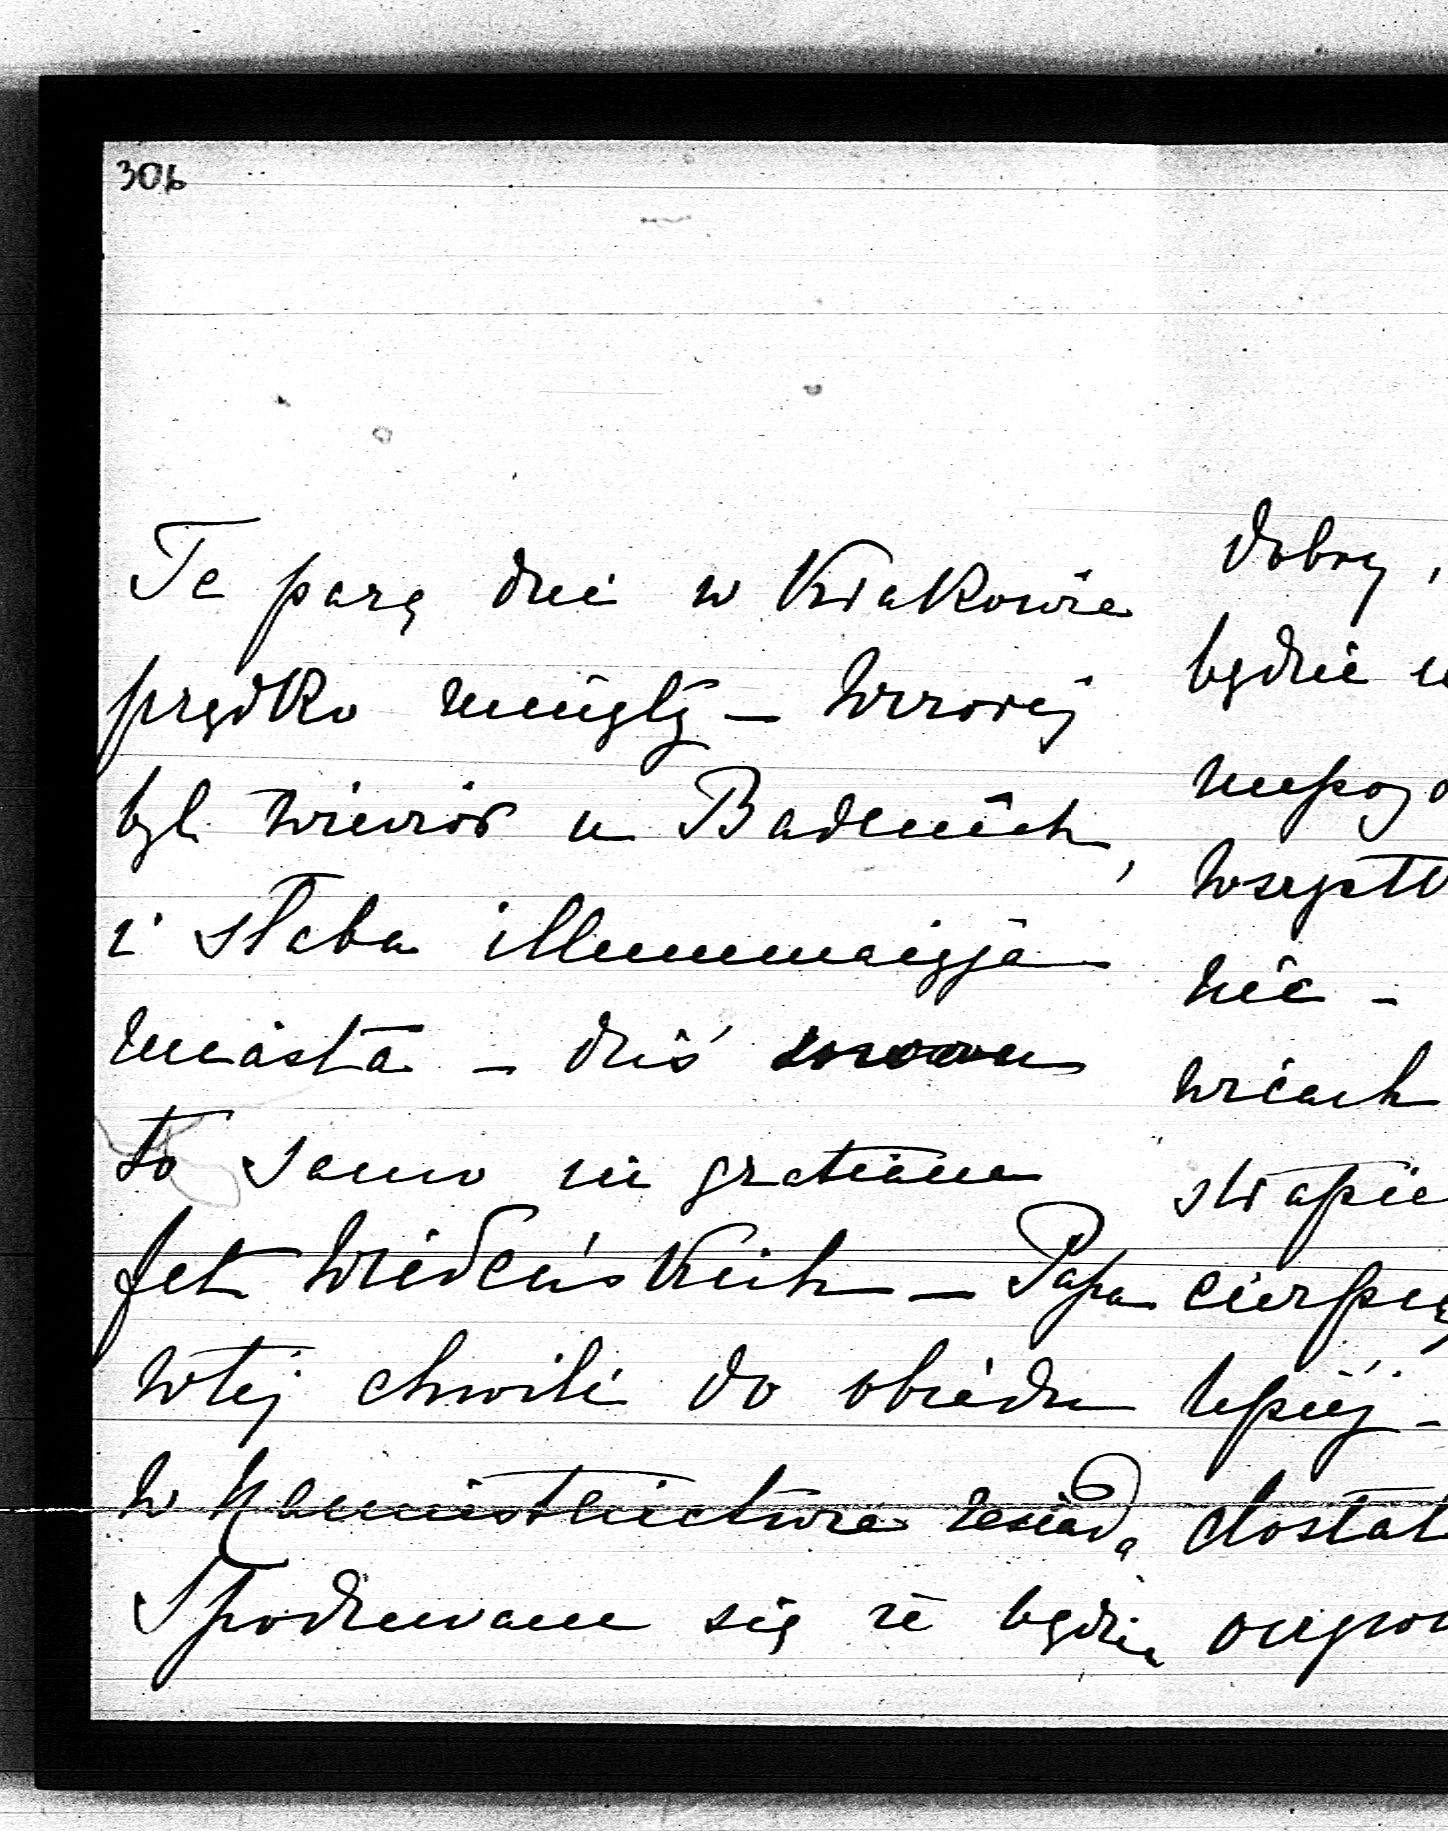 306
Te parę dni w Krakowie
prędko minęły – Wczoraj
był wieczór u Badenich,
i słaba illuminacyja
miasta – dziś znowu
to samo in gratiam
fet wiedeńskich – Papa
w tej chwili do obiadu
w Namiestnictwie zasiada
Spodziewam się że będzie
dobry,
będzie
wszystk
nie –
wicach
strapie
cierpię
lepiej –
dostał